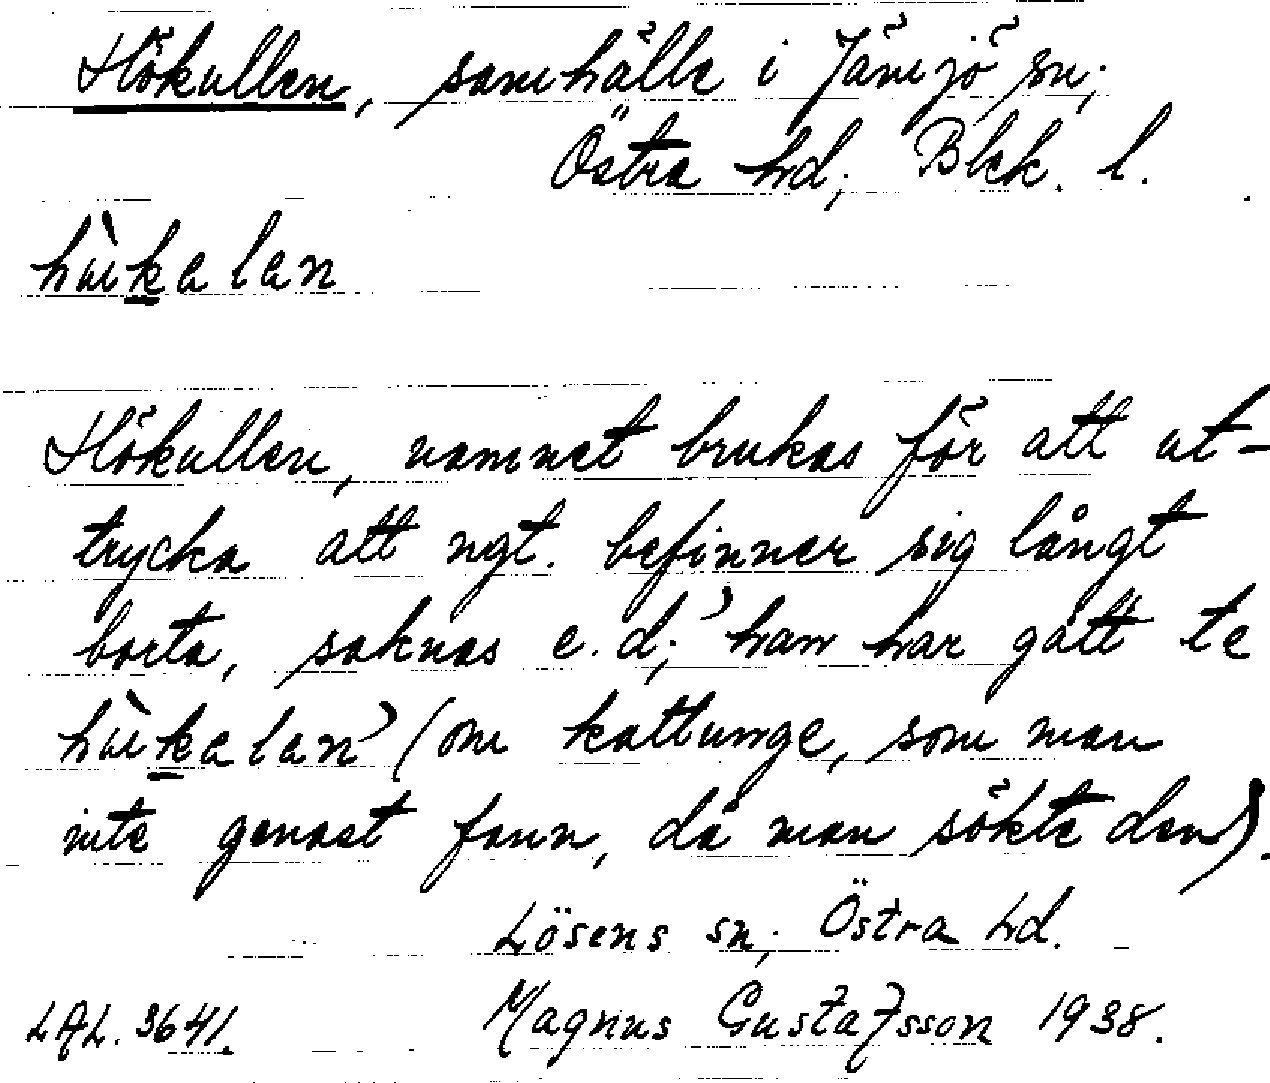 Hökullen, samhälle i Jämjö sn;
Östra hd; Blek. l.
hùkalan
Hökullen, namnet brukas för att ut-
trycka att ngt. befinner sig långt
borta, saknas e. d; 'han har gått te
hùkalan' (om kattunge, som man
inte genast fann, då man sökte den).
Lösens sn; Östra hd.
LAL. 3641. Magnus Gustafsson 1938.